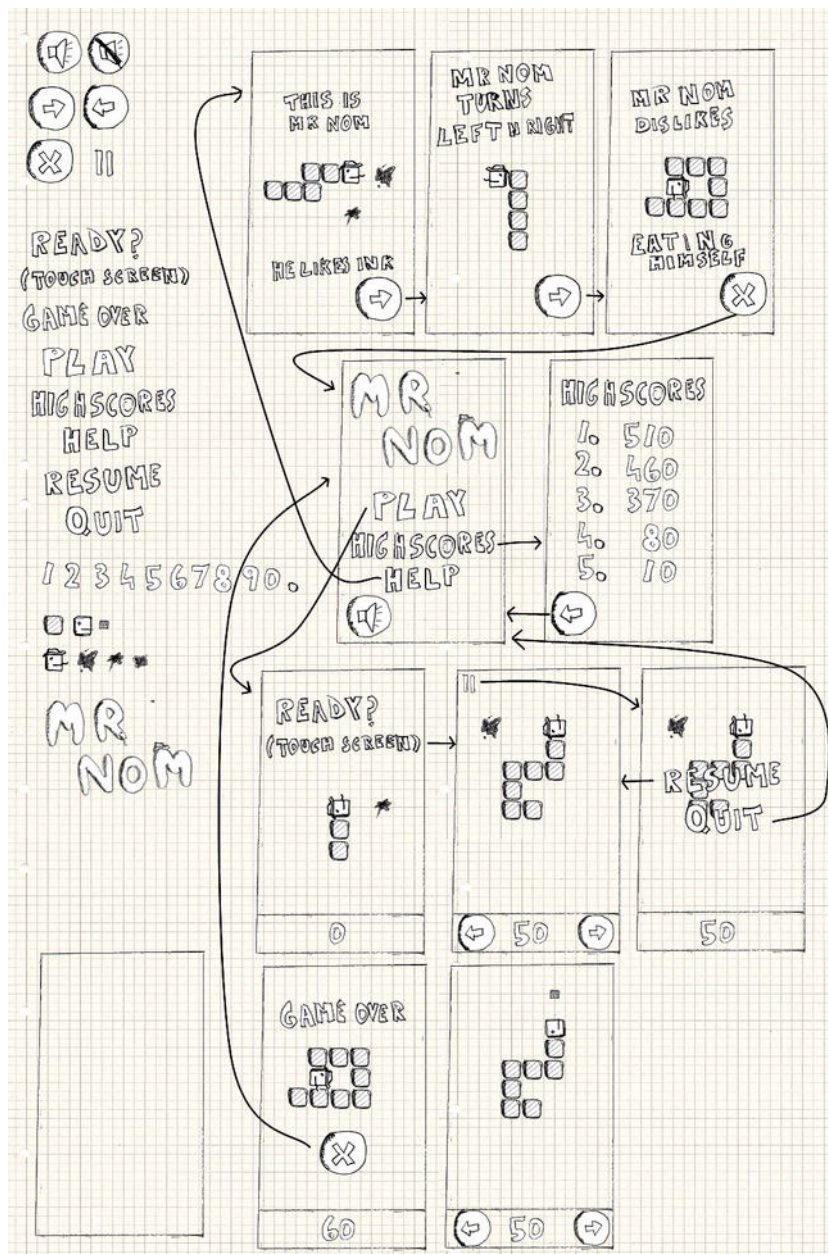 READY?
(TOUCH SCREEN)
GAME OVER
PLAY
HIGHSCORES
HELP
RESUME
QUIT
1 2 3 4 5 6 7 8 9 0 .
MR
NOM
THIS IS
MR NOM
HE LIKES INK
MR NOM
TURNS
LEFT N RIGHT
MR NOM
DISLIKES
EATING
HIMSELF
MR
NOM
PLAY
HIGHSCORES
HELP
HIGHSCORES
1. 510
2. 460
3. 370
4. 80
5. 10
READY?
(TOUCH SCREEN)
0
50
RESUME
QUIT
50
GAME OVER
60
50